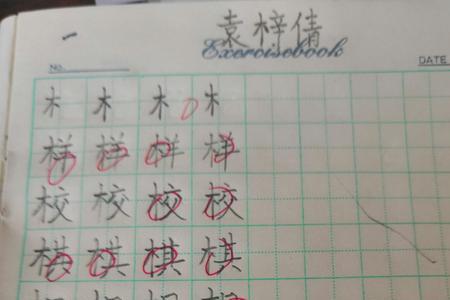 袁梓倩
Exercisebook
NO.
DATE
木 木 木 木
样 样 样 样
校 校 校 校
棋 棋 棋 棋